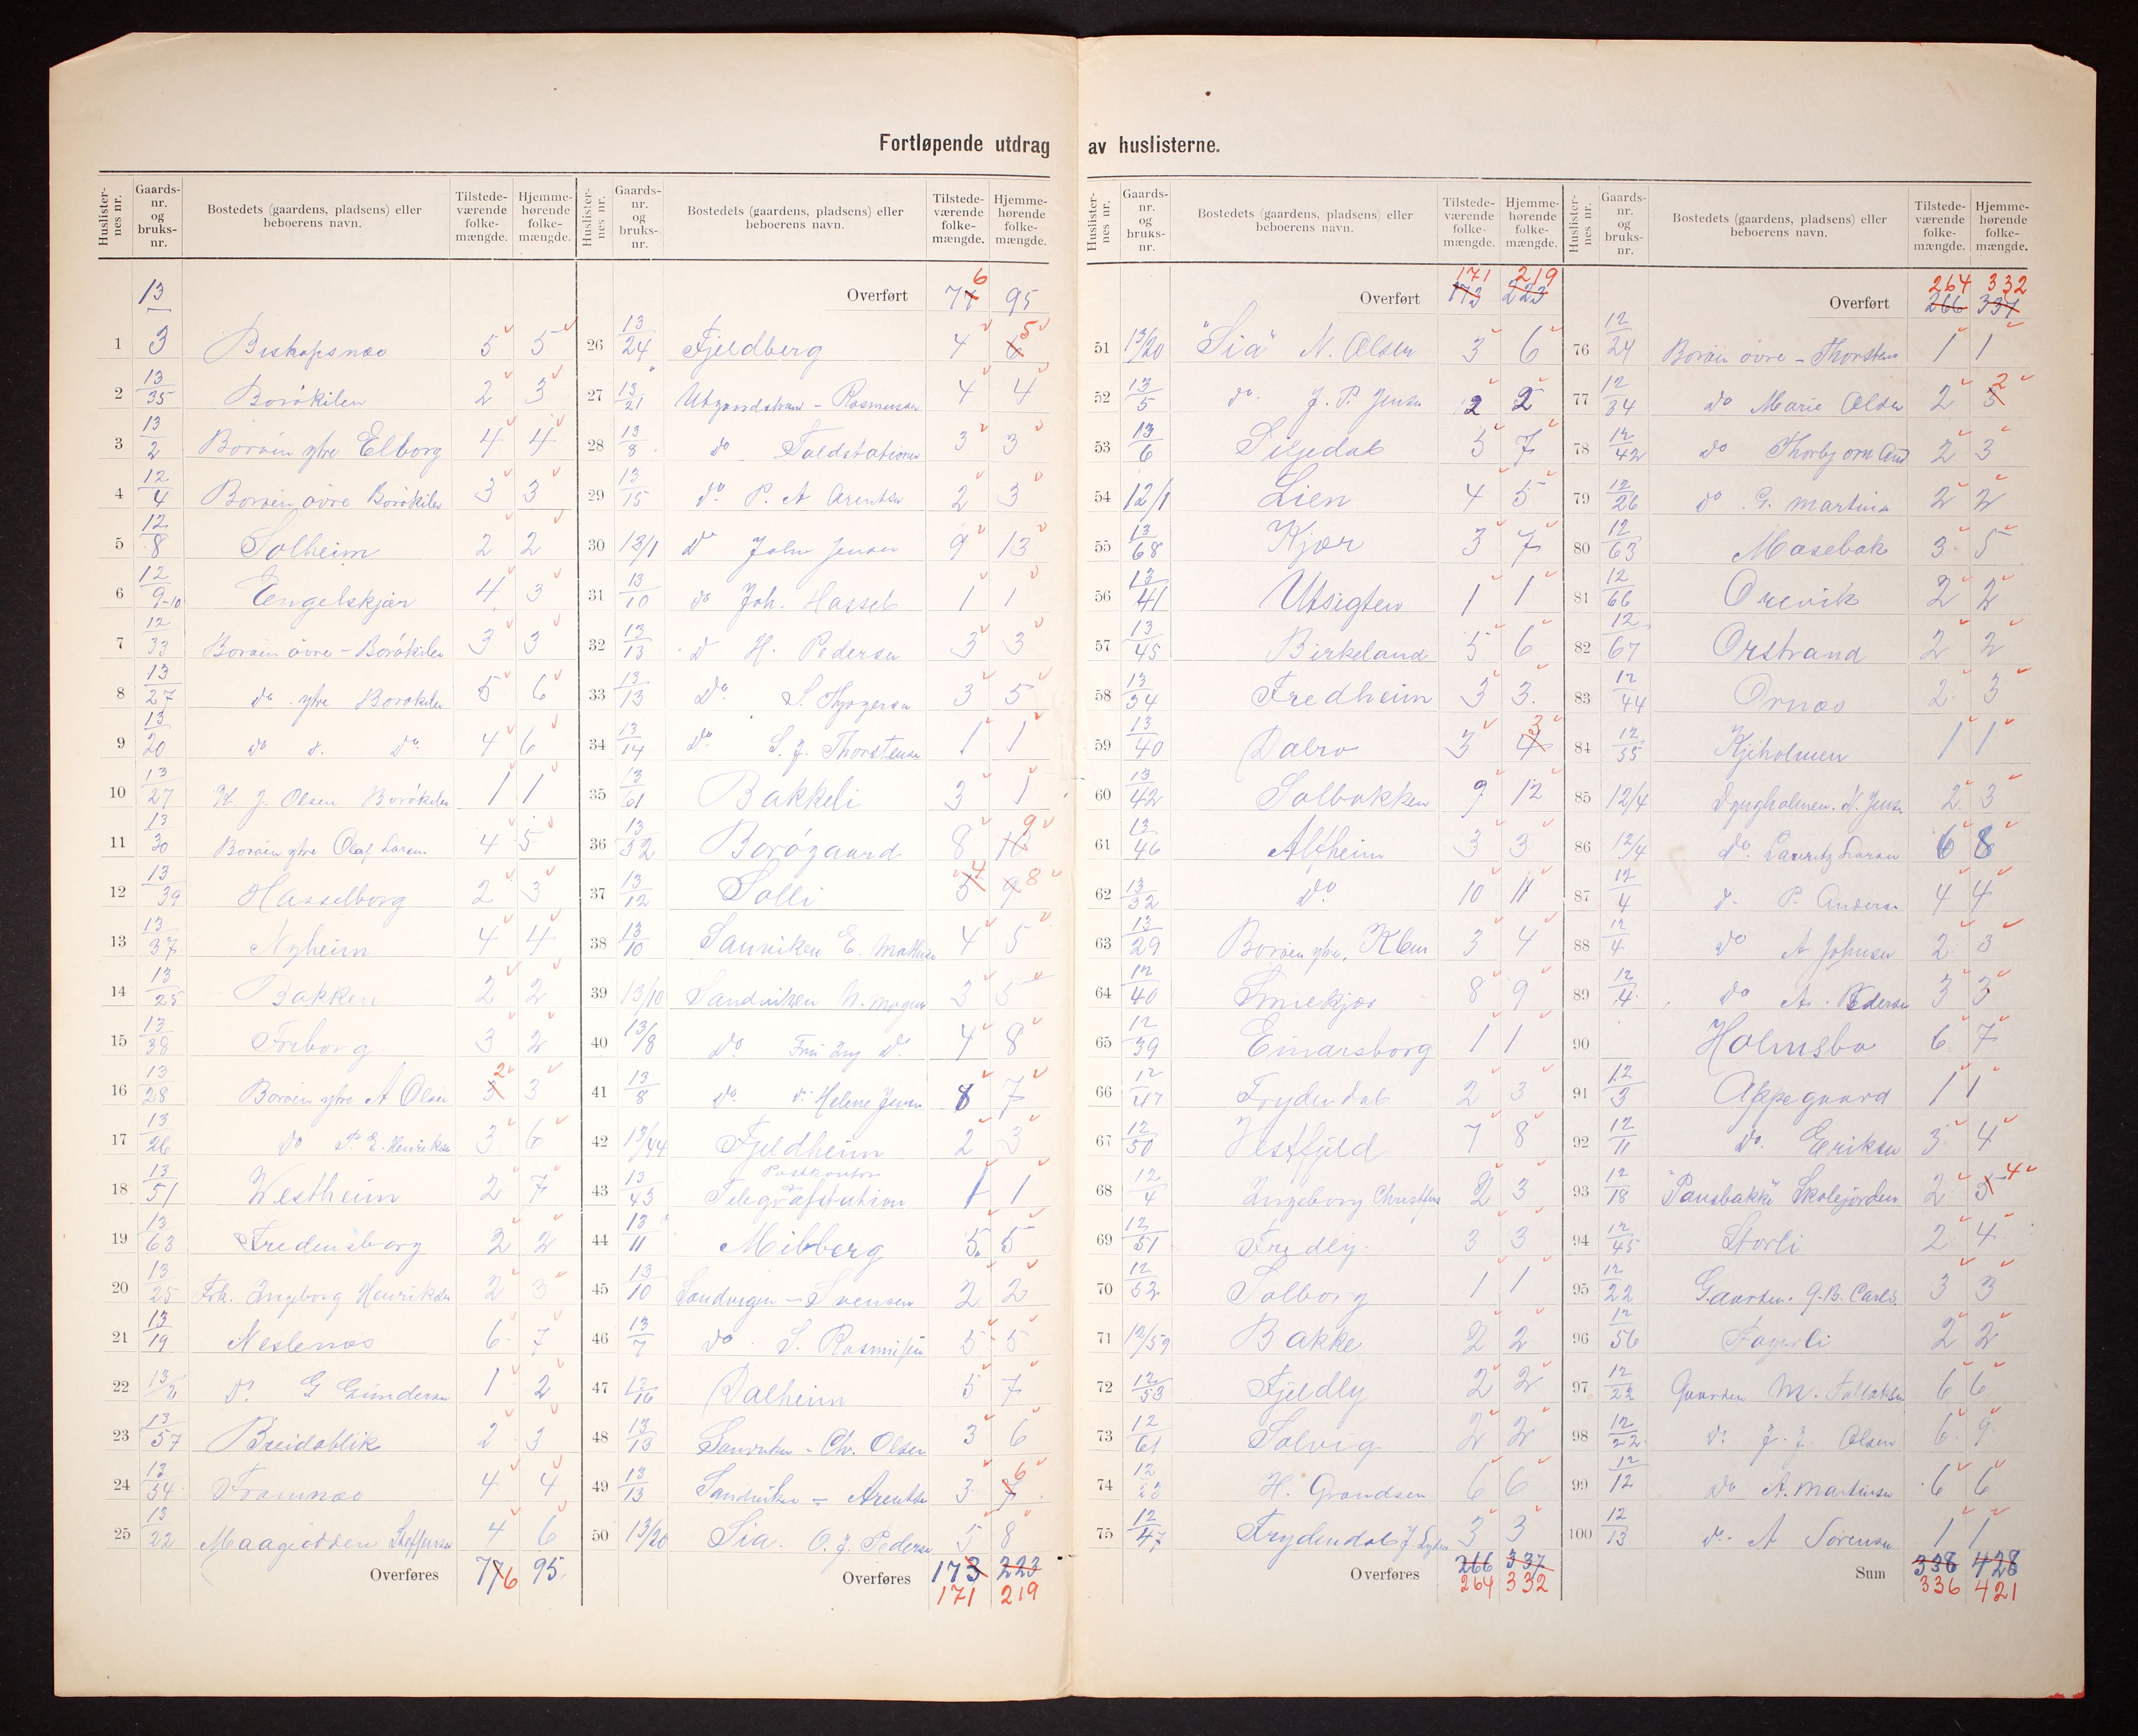 Fortløpende utdrag av huslisterne.
Huslisternes nr. | Gaards-nr. og bruks-nr. | Bostedets (gaardens, pladsens) eller beboerens navn. | Tilstedeværende folkemængde. | Hjemmehørende folkemængde.
13
1 3 Biskopsnæs 5 5
2 13/35 Borökilen 2 3
3 13/2 Boröen ytre Elborg 4 4
4 12/4 Boröen övre Borökilen 3 3
5 12/8 Solheim 2 2
6 12/9-10 Engelskjær 4 3
7 12/33 Boröen övre - Borökilen 3 3
8 13/27 do. ytre Borökilen 5 6
9 13/20 do do. 4 6
10 13/27 J. Olsen Borökilen 1 1
11 13/30 Boröen ytre Olaf Larsen 4 5
12 13/39 Hasselborg 2 3
13 13/37 Nyheim 4 4
14 13/25 Bakken 2 2
15 13/38 Freborg 3 2
16 13/28 Boröen ytre A Olsen 3 2 3
17 13/26 do P. E. Henriksen 3 6
18 13/51 Westheim 2 7
19 13/63 Fredensborg 2 2
20 13/25 Frk. Ingeborg Henriksen 2 3
21 13/19 Neslenæs 6 7
22 13/2 do. G Gundersen 1 2
23 13/57 Breidablik 2 3
24 13/54 Framnæs 4 4
25 13/22 Maageodden Steffensen 4 6
Overføres 77 6 95
Overført 77 6 95
26 13/24 Fjeldberg 4 6 5
27 13/21 Utgaardstrand - Rasmussen 4 4
28 13/8 do Toldstationen 3 3
29 13/15 do P. A Arentsen 2 3
30 13/1 do John Jensen 9 13
31 13/10 do Joh. Hassel 1 1
32 13/13 d H. Pedersen 3 3
33 13/13 Do. S. Thygesen 3 5
34 13/14 do. S. J. Thorstensen 1 1
35 13/61 Bakkeli 3 1
36 13/32 Borögaard 8 10 9
37 13/12 Solli 5 4 9 8
38 13/10 Sanviken E. Mathisen 4 5
39 13/10 Sandviken 3 5
40 13/8 do Fru do. 4 8
41 13/8 do. do. Helene Jensen 8 7
42 13/44 Fjeldheim 2 3
43 13/43 Postkontor Telegrafstation 1 1
44 13/11 Milberg 5 5
45 13/10 Sandvigen - Svensen 2 2
46 13/7 do S. Rasmusen 5 5
47 13/16 Dalheim 5 7
48 13/13 Sanviken - Chr. Olsen 3 6
49 13/13 Sandviken - Arentsen 3 7 6
50 13/20 Sia. O. J. Pedersen 5 8
Overføres 173 223
171 219
171 219
Overført 173 223
51 13/20 "Sia" N. Olsen 3 6
52 13/5 do. J. P. Jensen 2 2
53 13/6 Siljedal 5 7
54 12/1 Lien 4 5
55 13/68 Kjær 3 7
56 13/41 Utsigten 1 1
57 13/45 Birkeland 5 6
58 13/34 Fredheim 3 3
59 13/40 Dalro 3 4 3
60 13/42 Solbakken 9 12
61 13/46 Altheim 3 3
62 13/32 do. 10 11
63 13/29 Boröen ytre, Klem 3 4
64 12/40 8 9
65 12/39 Einarsborg 1 1
66 12/47 Frydendal 2 3
67 12/50 Vestfjeld 7 8
68 12/4 Ingeborg Christens 2 3
69 12/51 Fredly 3 3
70 12/52 Solborg 1 1
71 12/59 Bakke 2 2
72 12/53 Fjeldly 2 2
73 12/61 Solvig 2 2
74 12/23 H. Grandsen 6 6
75 12/47 Frydendal J. 3 3
Overføres 266 337
264 332
264 332
Overført 266 337
76 12/24 Boröen övre - Thorsten 1 1
77 12/34 do Marie Olsen 2 3 2
78 12/42 do Thorbjorn And 2 3
79 12/26 do G. Martinsen 2 2
80 12/63 Mosebak 3 5
81 12/66 Orevik 2 2
82 12/67 Orstrand 2 2
83 12/44 Ornæs 2 3
84 12/55 Kjeholmen 1 1
85 12/4 Dyngholmen. N. Jensen 2 3
86 12/4 do. Lauritz Larsen 6 8
87 12/4 do P. Andersen 4 4
88 12/4 do A Johnsen 2 3
89 12/4 do A. Pedersen 3 3
90 Holmsbo 6 7
91 12/3 Appegaard 1 1
92 12/11 do. Eriksen 3 4
93 12/18 "Pansbakke" Skolejorden 2 5 4
94 12/45 Storli 2 4
95 12/22 Gaarden. G. B. Carls. 3 3
96 12/56 Fagerli 2 2
97 12/22 Gaarden M. Tallaksen 6 6
98 12/22 do J. J. Olsen 6 9
99 12/12 do A. Martinsen 6 6
100 12/13 do. A Sörensen 1 1
Sum 338 428
336 421